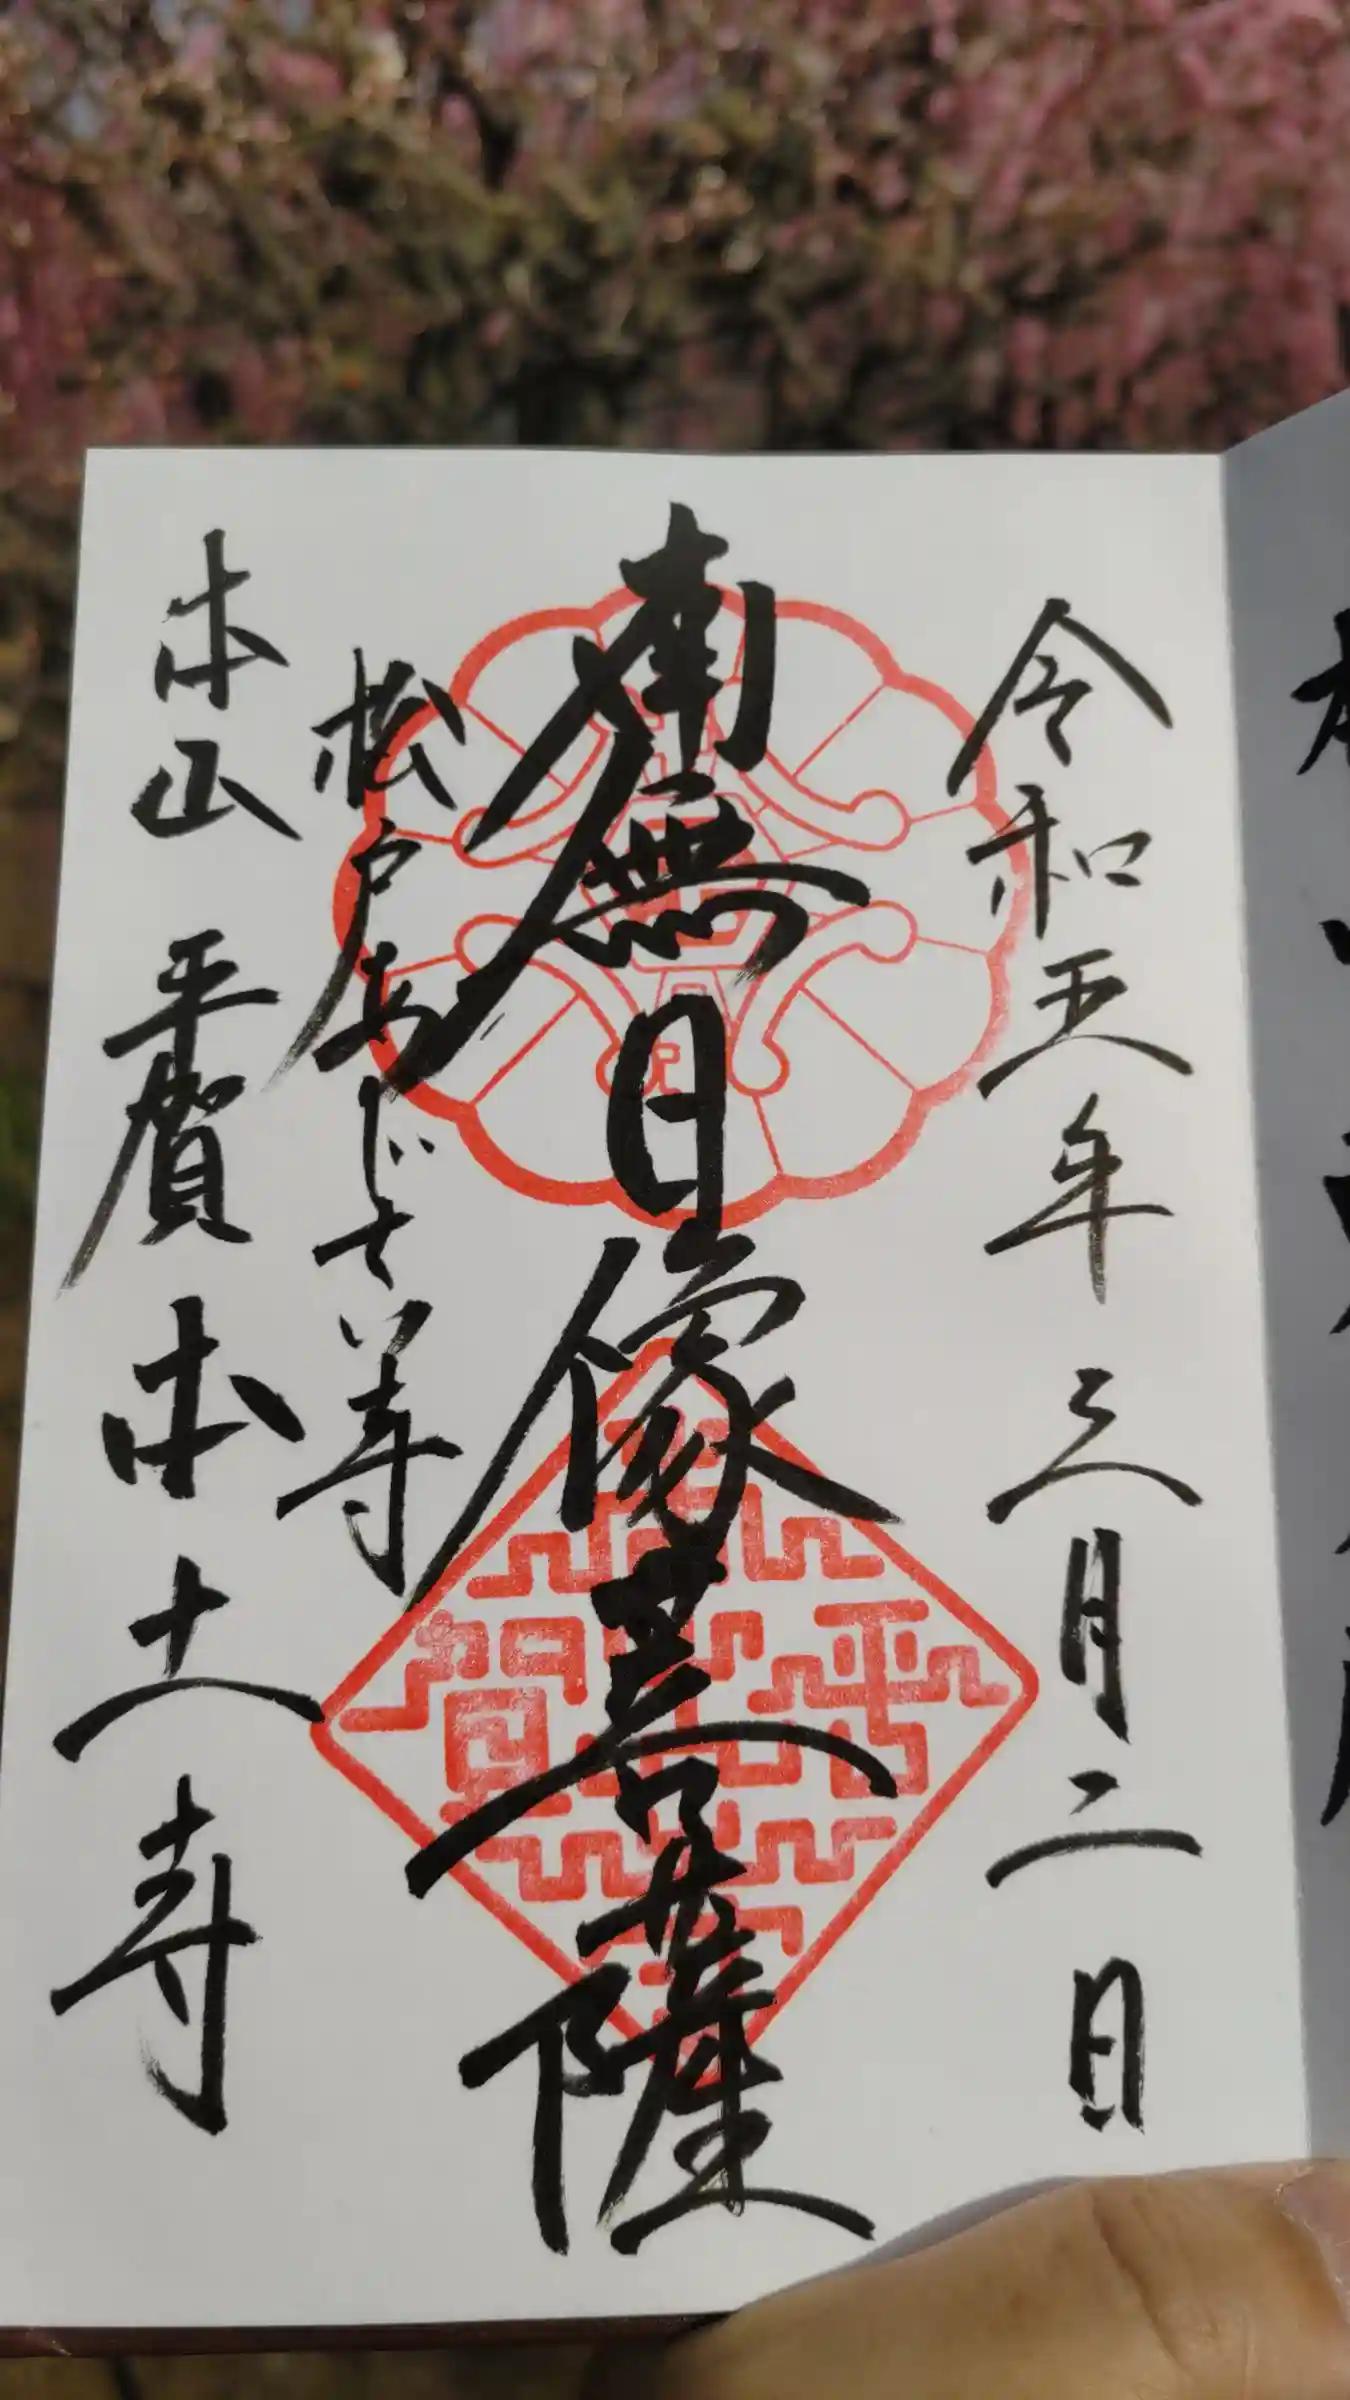 令和五年三月二日
南無日像菩薩
松戸あじさい寺
本山 平賀 本土寺